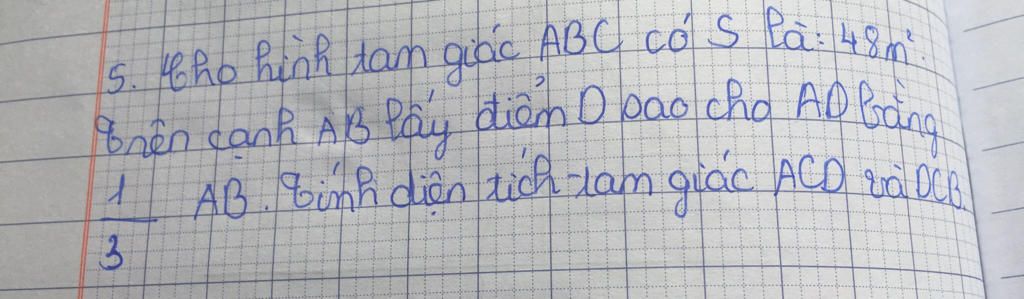 5. Cho hình tam giác ABC có S là: 48m².
Trên cạnh AB lấy điểm D sao cho AD bằng
1/3 AB. Tính diện tích tam giác ACD và DCB.